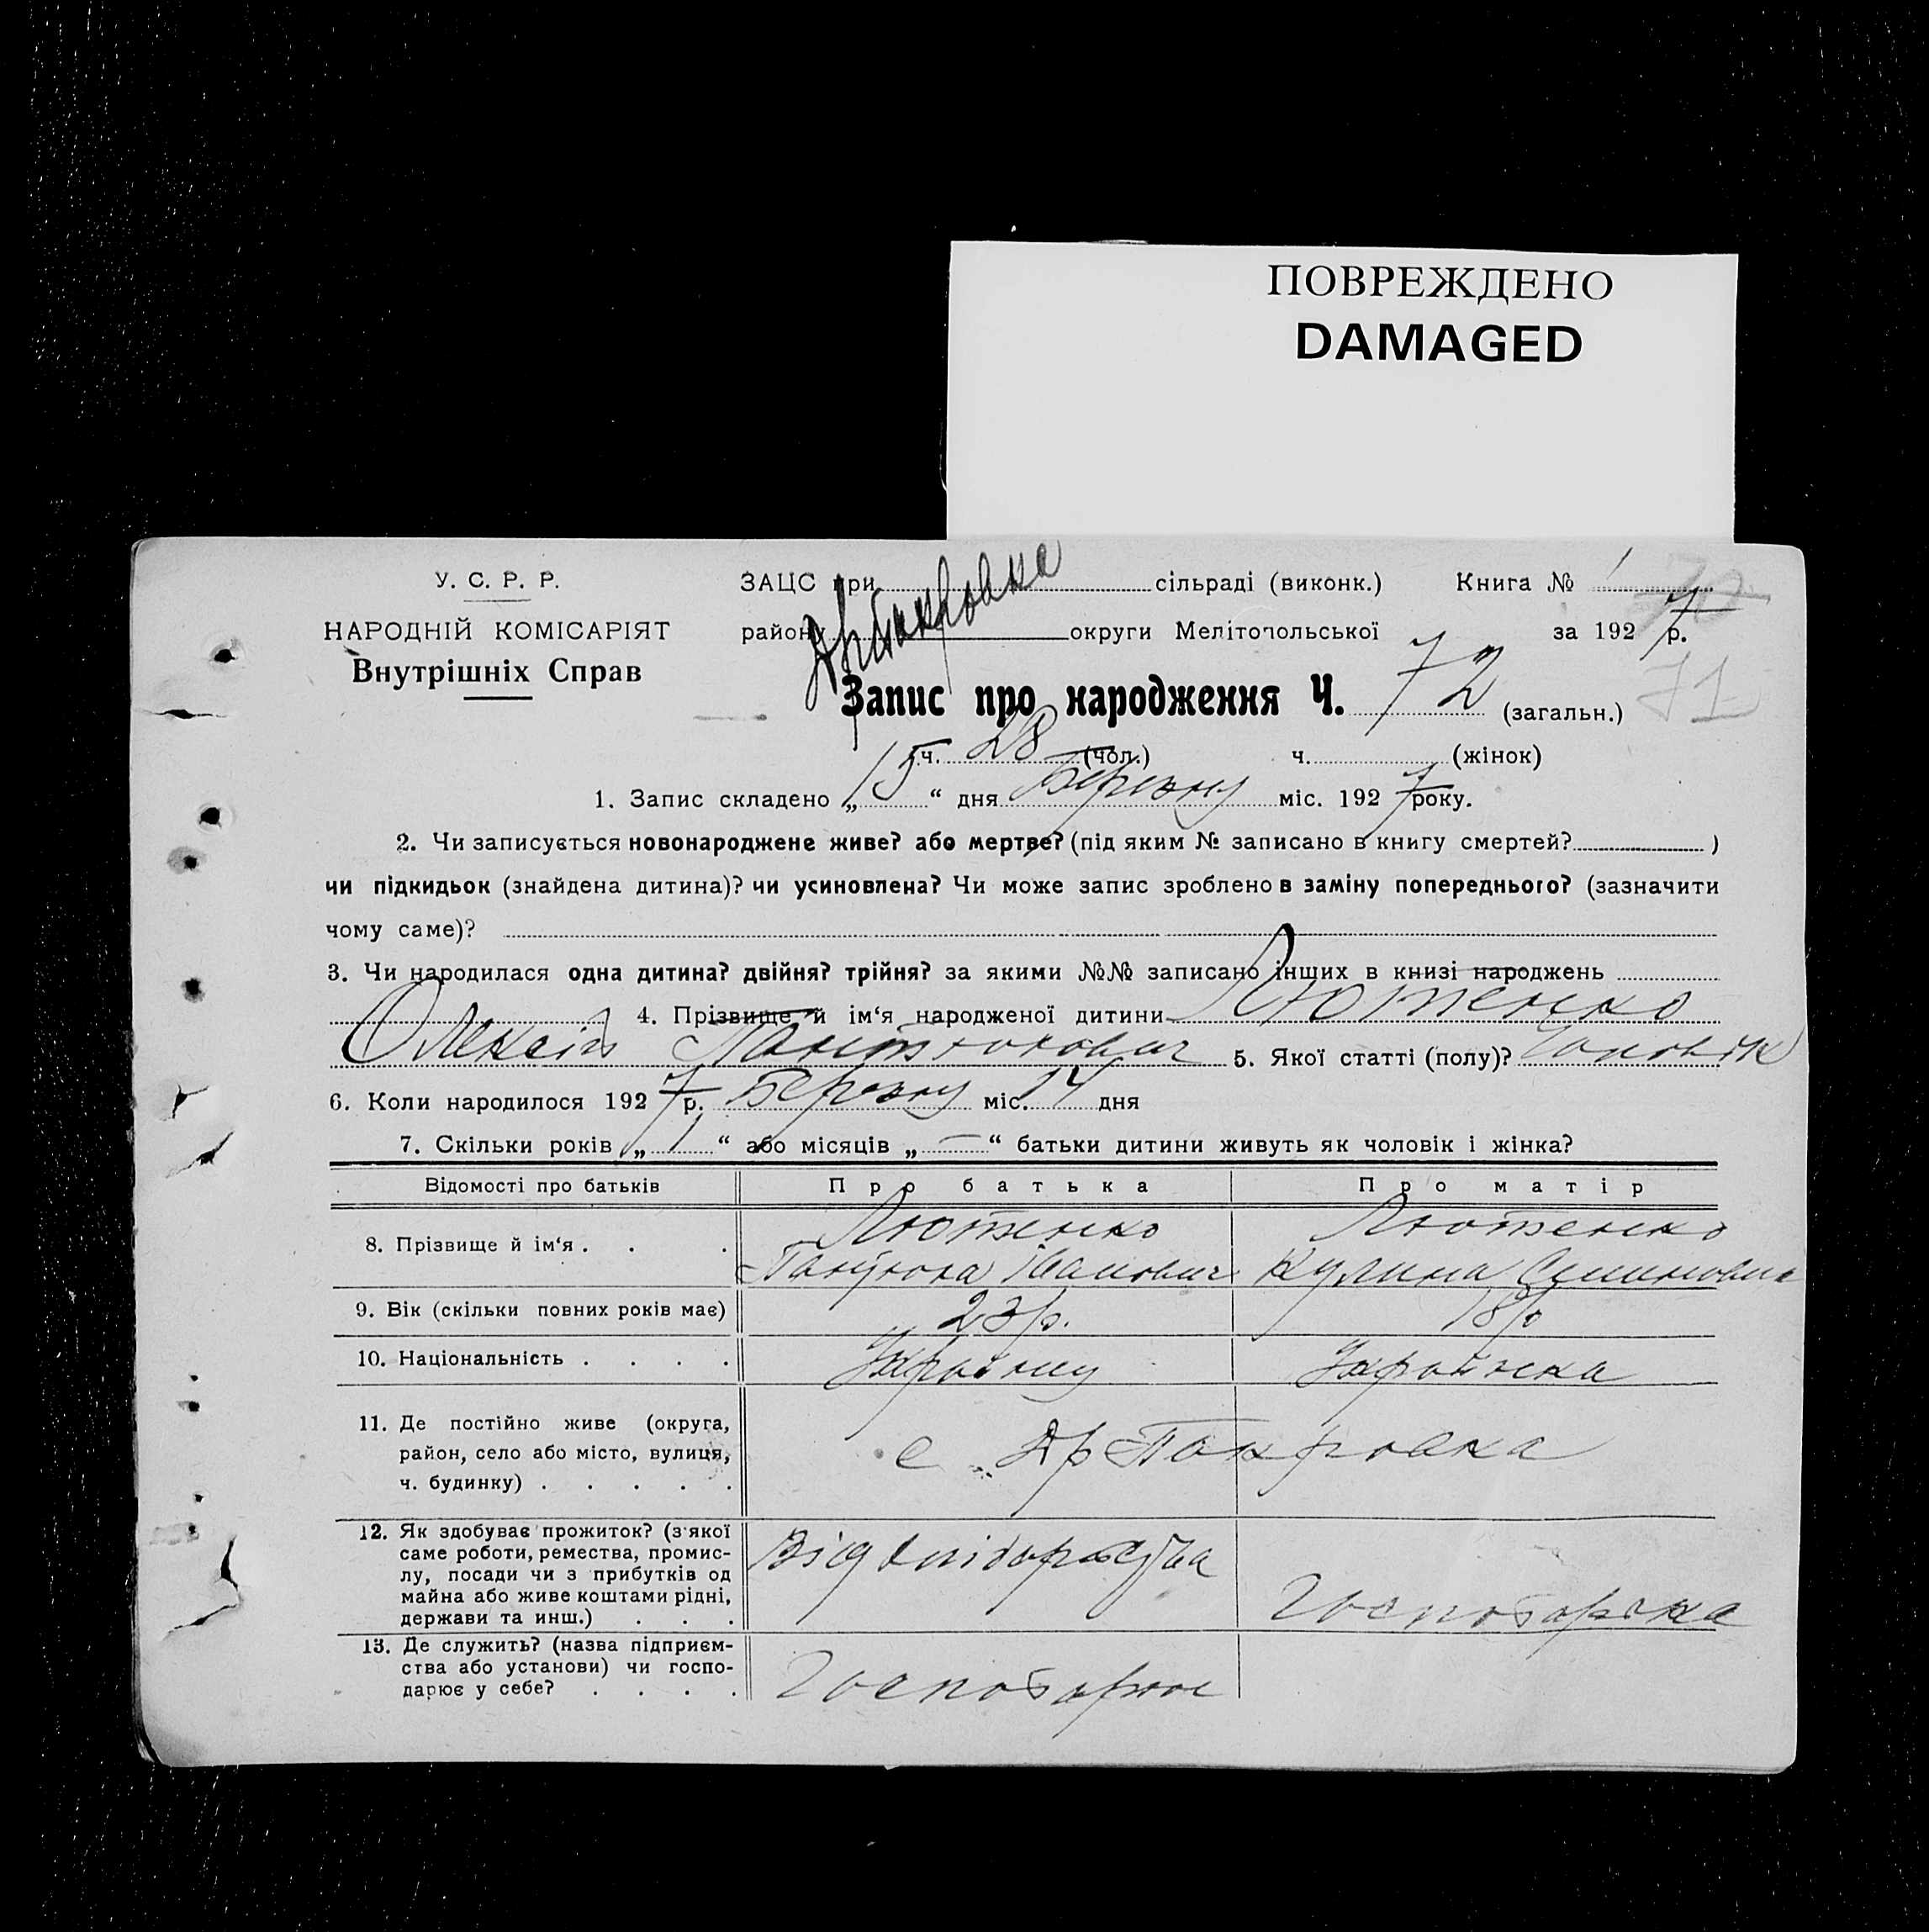 ПОВРЕЖДЕНО
DAMAGED
У. С. Р. Р.
НАРОДНІЙ КОМІСАРІЯТ
Внутрішніх Справ
ЗАЦС при сільраді (виконк.) Книга № 1
району округи Мелітопольської за 1927 р.
Запис про народження Ч. 72 (загальн.) 71
ч. 28 (чол.) ч. (жінок)
1. Запис складено „15“ дня Березня міс. 1927 року.
2. Чи записується новонароджене живе? або мертве? (під яким № записано в книгу смертей? )
чи підкидьок (знайдена дитина)? чи усиновлена? Чи може запис зроблено в заміну попереднього? (зазначити
чому саме)?
3. Чи народилася одна дитина? двійня? трійня? за якими №№ записано інших в книзі народжень
4. Прізвище й ім‘я народженої дитини Лютенко
Олексій 5. Якої статті (полу)? Чоловік
6. Коли народилося 1927 р. Березня міс. 14 дня
7. Скільки років „1“ або місяців „—“ батьки дитини живуть як чоловік і жінка?
Відомості про батьків Про батька Про матір
8. Прізвище й ім‘я . . . Лютенко Лютенко
Іванович Кулина Семиновна
9. Вік (скільки повних років має) 23 р. 18 р
10. Національність . . . . Україка
11. Де постійно живе (округа,
район, село або місто, вулиця,
ч. будинку) . . . . .
с Др Покровка
12. Як здобуває прожиток? (з якої
саме роботи, ремества, промис-
лу, посади чи з прибутків од
майна або живе коштами рідні,
держави та инш.) . . .
13. Де служить? (назва підприєм-
ства або установи) чи госпо-
дарює у себе? . . . .
Господарює